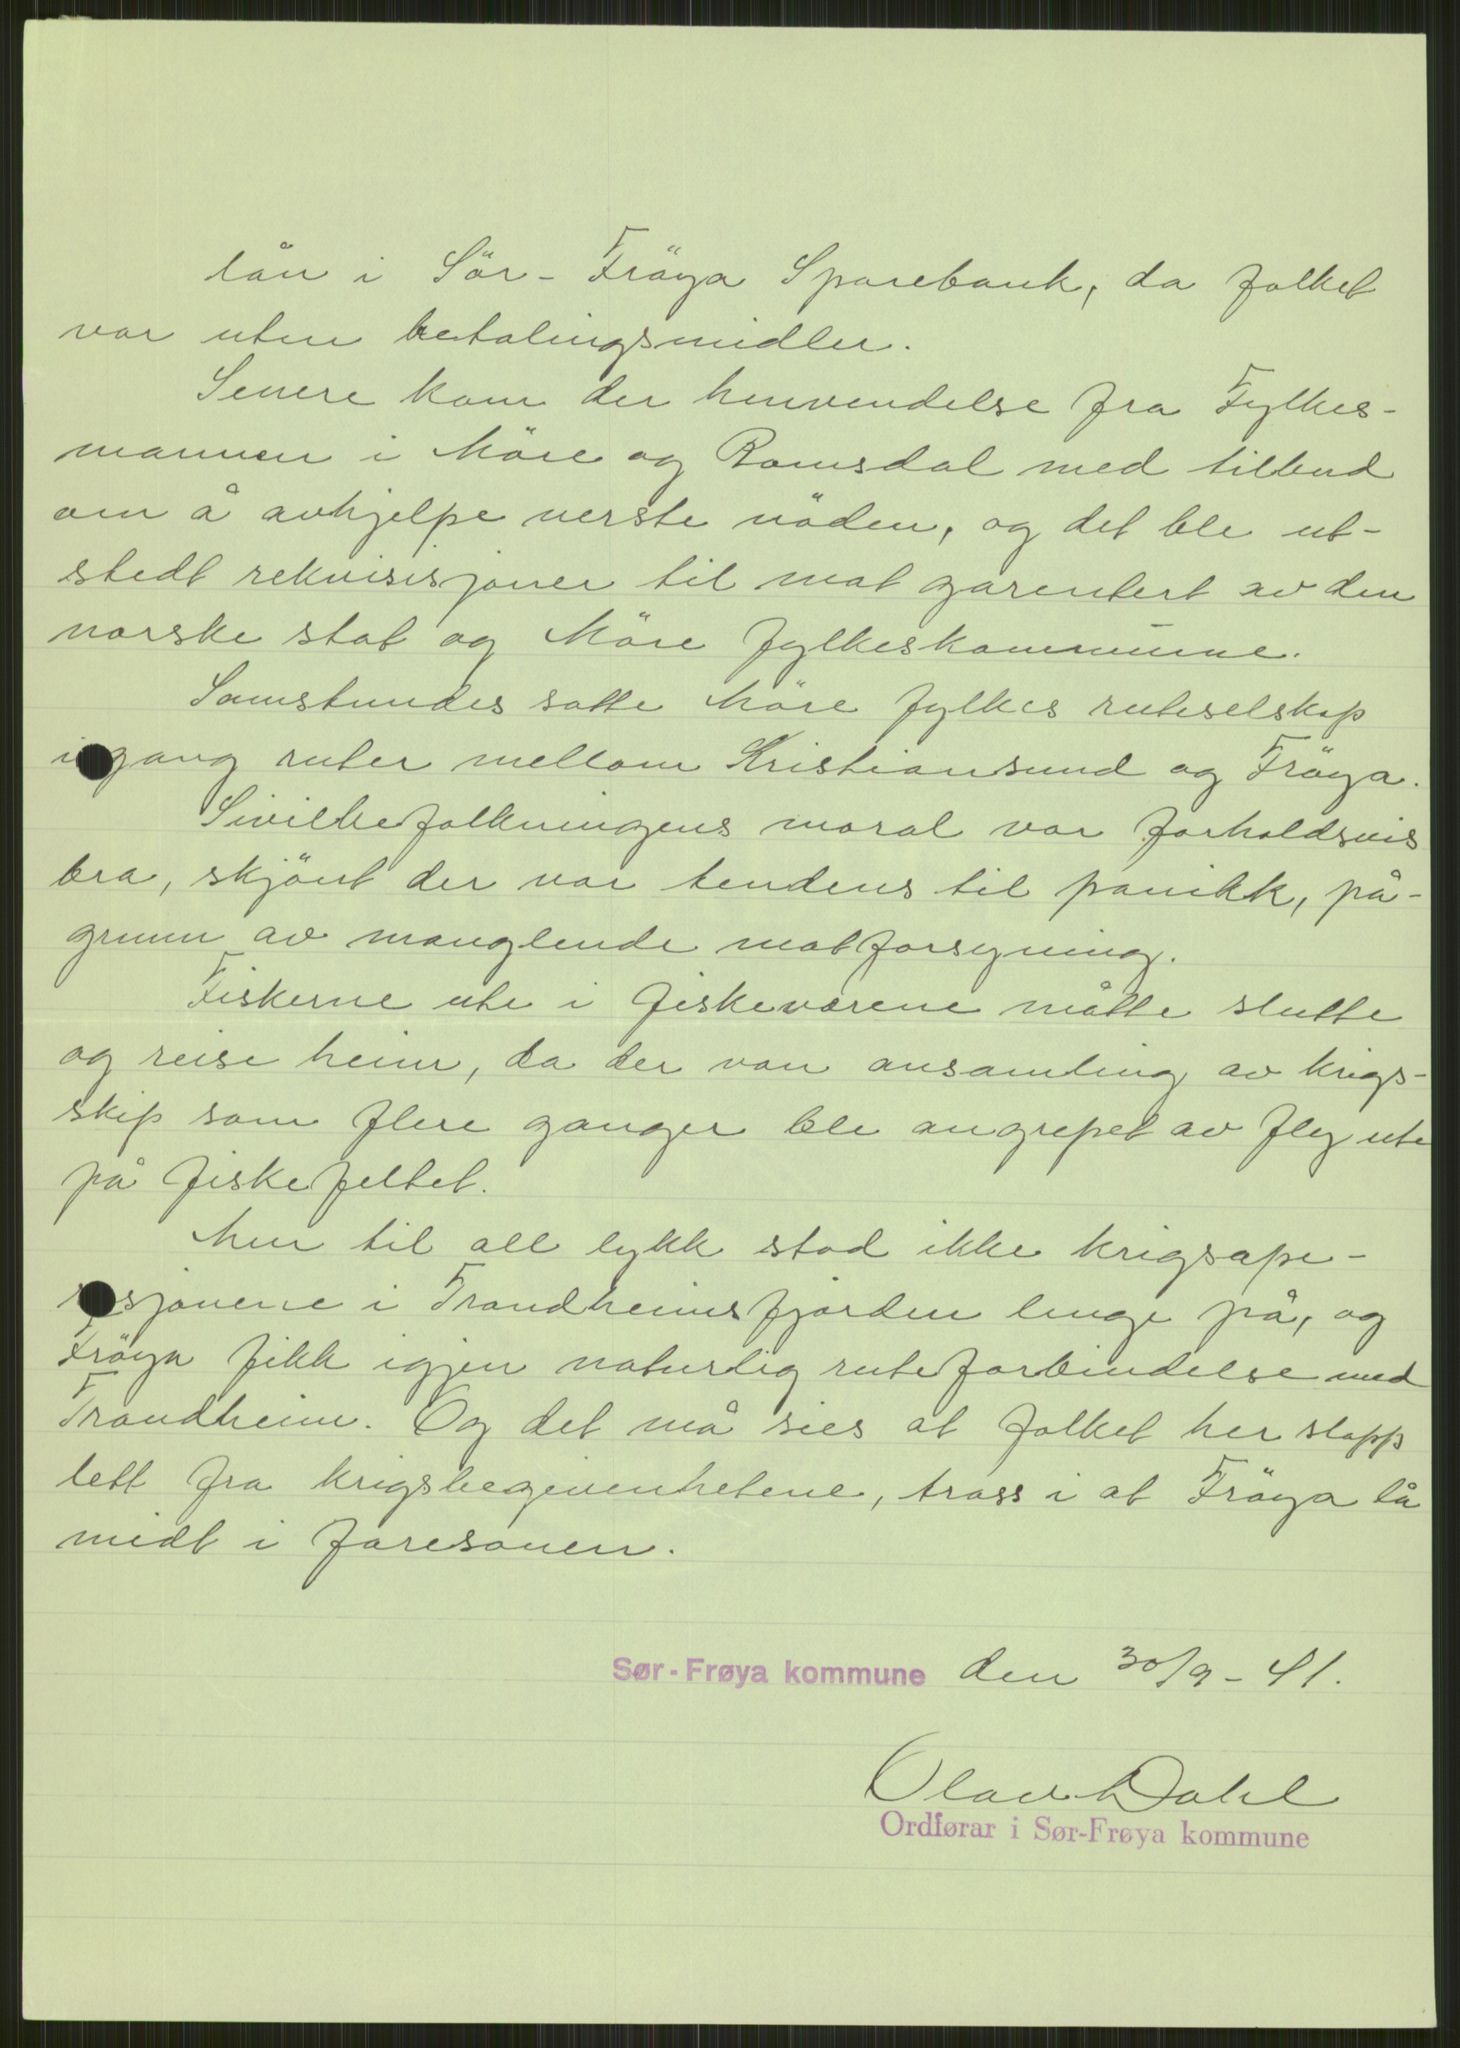 lån i Sör-Fröya Sparebank, da folket
var uten betalingsmidler.
Senere kom der henvendelse fra Fylkes-
mannen i Möre og Romsdal med tilbud
om å avhjelpe verste nöden, og det ble ut-
stedt rekvisisjoner til mat garentert av den
norske stat og Möre fylkeskommune.
Samstundes satte Möre fylkes ruteselskap
igang ruter mellom Kristiansund og Fröya.
Sivilbefolkningens moral var forholdsvis
bra, skjönt der var tendens til panikk, på-
grunn av manglende matforsyning.
Fiskerne ute i fiskeværene måtte slutte
og reise heim, da der var ansamling av krigs-
skip som flere ganger ble angrepet av fly ute
på fiskefeltet.
Men til all lykk stod ikke krigsope-
rasjonene i Trondheimsfjorden lenge på, og
Fröya fikk igjen naturlig ruteforbindelse med
Trondheim. Og det må sies at folket her slapp
lett fra krigsbegivenhetene, trass i at Fröya lå
midt i faresonen.
Sør-Frøya kommune den 30/9-41.
Olav Dahl
Ordførar i Sør-Frøya kommune